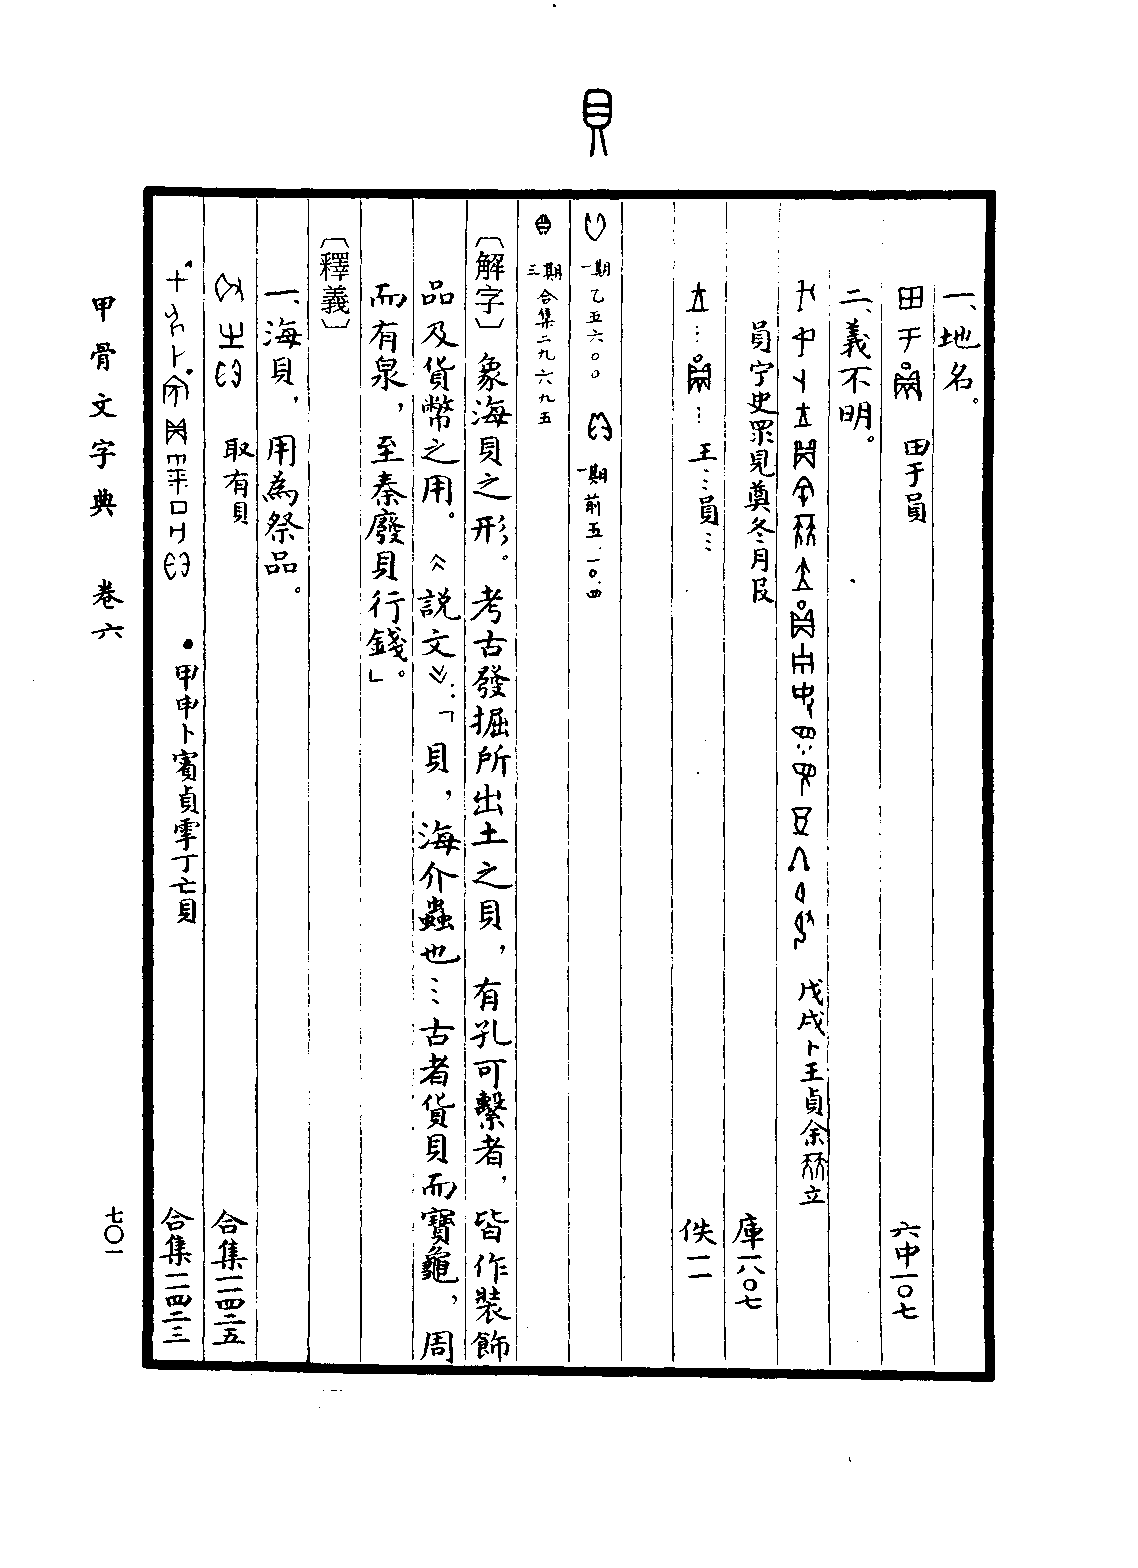 貝
一、地名。
田于員 六中一〇七
二、義不明。
戊戌卜王貞余立
員宁史眾見奠冬月 庫一八〇七
王…員… 佚一一
一期乙五六〇〇 一期前五.一〇.四
三期合集二九六九五
〔解字〕象海貝之形。考古發掘所出土之貝，有孔可繫者，皆作裝飾
品及貨幣之用。《説文》：「貝，海介蟲也…古者貨貝而寶龜，周
而有泉，至秦廢貝行錢」。
〔釋義〕
一、海貝，用為祭品。
取有貝 合集一一四二五
甲申卜賓貞雩丁亡貝 合集一一四二三
甲骨文字典 卷六
七〇一